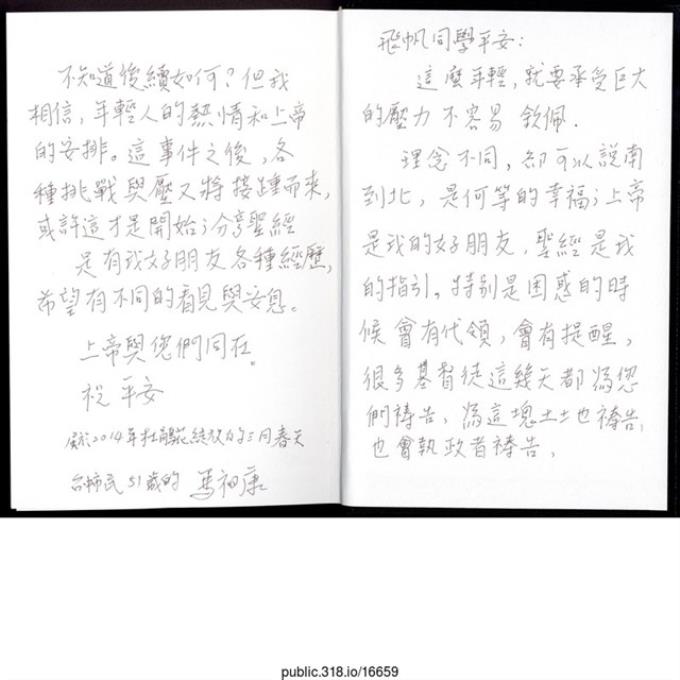 飛帆同學平安：
這麼年輕，就要承受巨大
的壓力不容易 欽佩．
理念不同，卻可以說南
到北，是何等的幸福；上帝
是我的好朋友，聖經是我
的指引。特別是困惑的時
候會有代領，會有提醒，
很多基督徒這幾天都為您
們禱告、為這塊土地禱告，
也會執政者禱告、
不知道後續如何？但我
相信，年輕人的熱情和上帝
的安排。這事件之後，各
種挑戰與壓又將接踵而來，
或許這才是開始；分享聖經
是有我好朋友各種經歷，
希望有不同的看見與安息。
上帝與您們同在。
祝 平安
2014年杜鵑花綻放的三月春天
台 市民51歲的 馬祖康
public.318.io/16659